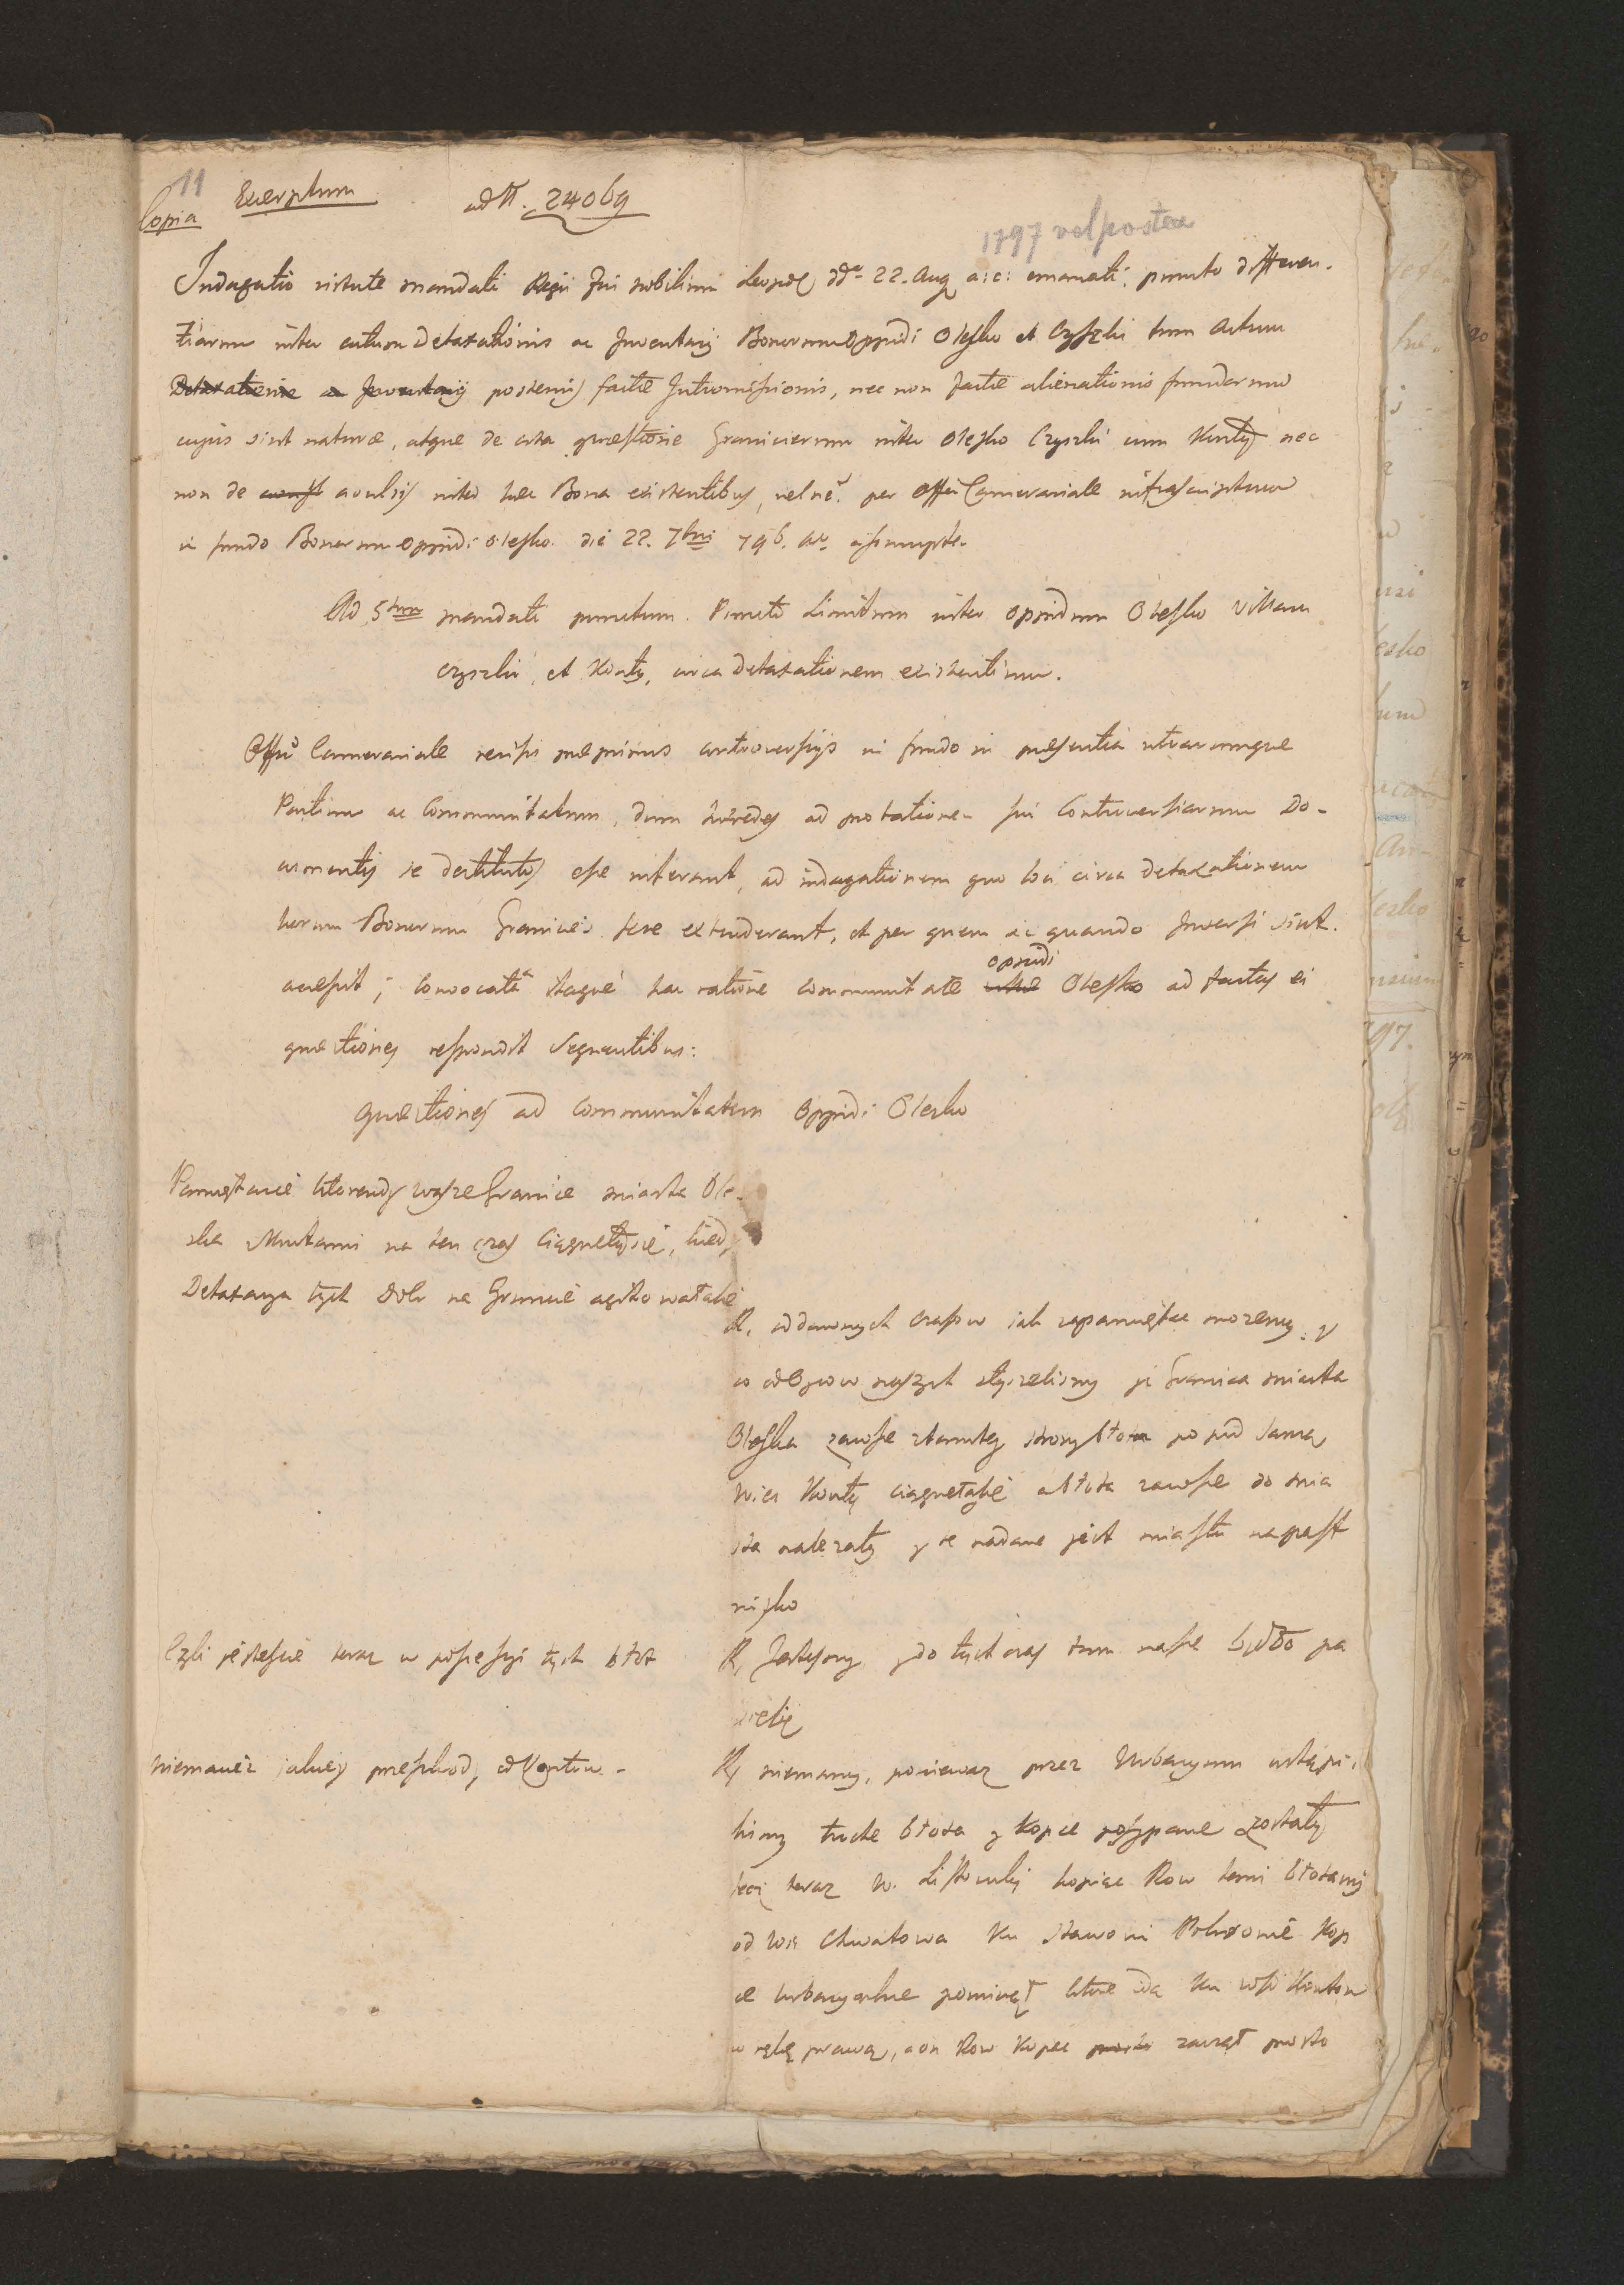 11
Copia
Excerptum ad N. 24069
1797 vel postea
Indagatio virtute mandati Regii Fori nobilium Leopol dd° 22. Aug a: c: emanati, puncto differen-
tiarum inter actum Detaxationis ac Inventarij Bonorum Oppidi Olesko et Czyszki tum Actum
Detaxationis ac Inventarij posterius factae Intromissionis, nec non factae alienationis fundorum
cujus sint naturae, atque de orta questione Graniciarum inter Olesko Czyszki cum Konty nec
non de avulsis inter haec Bona existentibus, vel ne? per Offm Camerariale infrascriptum
in fundo Bonorum Oppidi Olesko die 22. 7bris 796. ao assumpta.
Ad 5tum mandati punctum. Puncto Limitum inter Oppidum Olesko Villam
Czyszki, et Konty, circa Detaxationem existentium.
Offm Camerariale revisis praeprimis controversijs in fundo in praesentia utrarumque
Partium ac Communitatum, dum haeredes ad probationem sui Controversiarum Do-
cumentis se destitutos esse niterant, ad indagationem quo loci circa Detaxationem
horum Bonorum Granicies sese extenderant, et per quem ac quando Inversi sint.
accessit; Convocata itaque hac ratione communitate oppidi Olesko ad factas ei
questiones respondit sequentibus:
Questiones ad Communitatem Oppidi Olesko
Pamiętacie ktorendy wasze Granice miasta Ole-
ska z Kontami na ten czas Ciągneły się, kiedy
Detaxacya tych Dobr na Gruncie agitowała się
R, od dawnych czasow jak zapamiętac mozemy, y
co od Oycow naszych słyszelismy że Granica miasta
Oleska zawsze z tamtey strony błota po pod samą
Wies Konty ciągneła się a błota zawsze do mia
sta nalezały y te nadane jest miastu na past
wisko
Czli jestescie teraz w possessyi tych błot
R, Jestesmy, y do tych czas tam nasze bydło pa
siecie
Niemacie jakiey przeszkody od Kontow -
R, niemamy, poniewaz przez Urbaryum ustąpi-
lismy troche błota y kopce posypane zostały
lecz teraz W. Listowski kopiąc Row temi błotami
od Wsi Chwatowa ku stawowi kop
ce urbaryalne pominął ktore idą ku wsi Kontow
w rękę prawą, a on Row kopac zaczął prosto